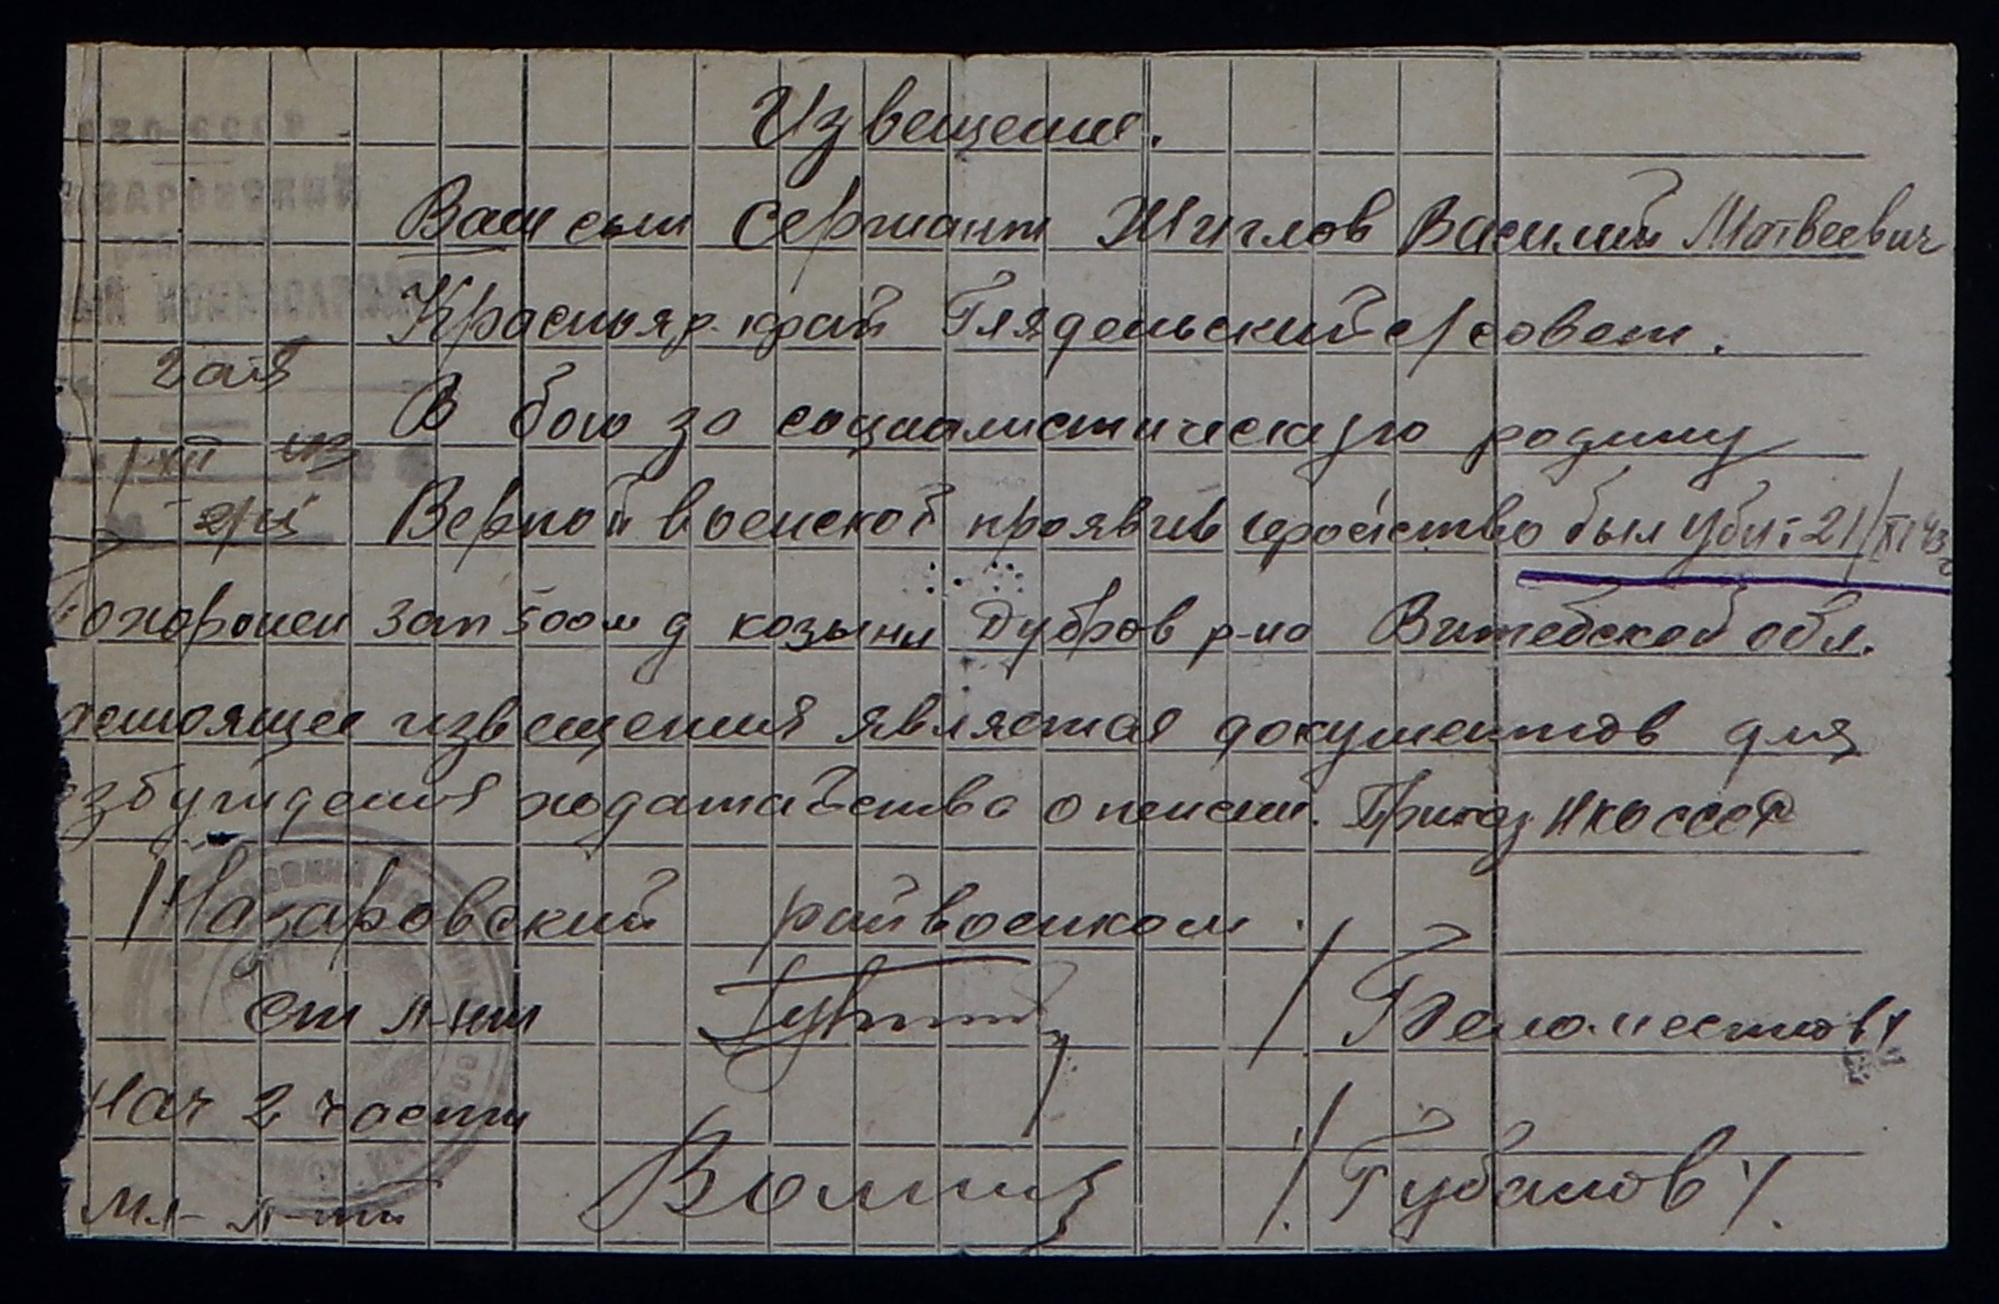 Извещение.
Ваш сын Сержант Жиглов Василий Матвеевич
Краснояр. край Глядельский с/совет.
В бою за социалистическую родину
Верной военской проявив геройство был убит 21/XI 43
похоронен зап 500 м д козыни Дубров р-но Витебской обл.
астоящее извещения является документов для
збуждения ходатайство о пенсии. Приказ НКО СССР
Назаровский райвоенком
ст л-нт / Беломестнов /
Нач 2 части
Мл- л-нт /. Губанов /.